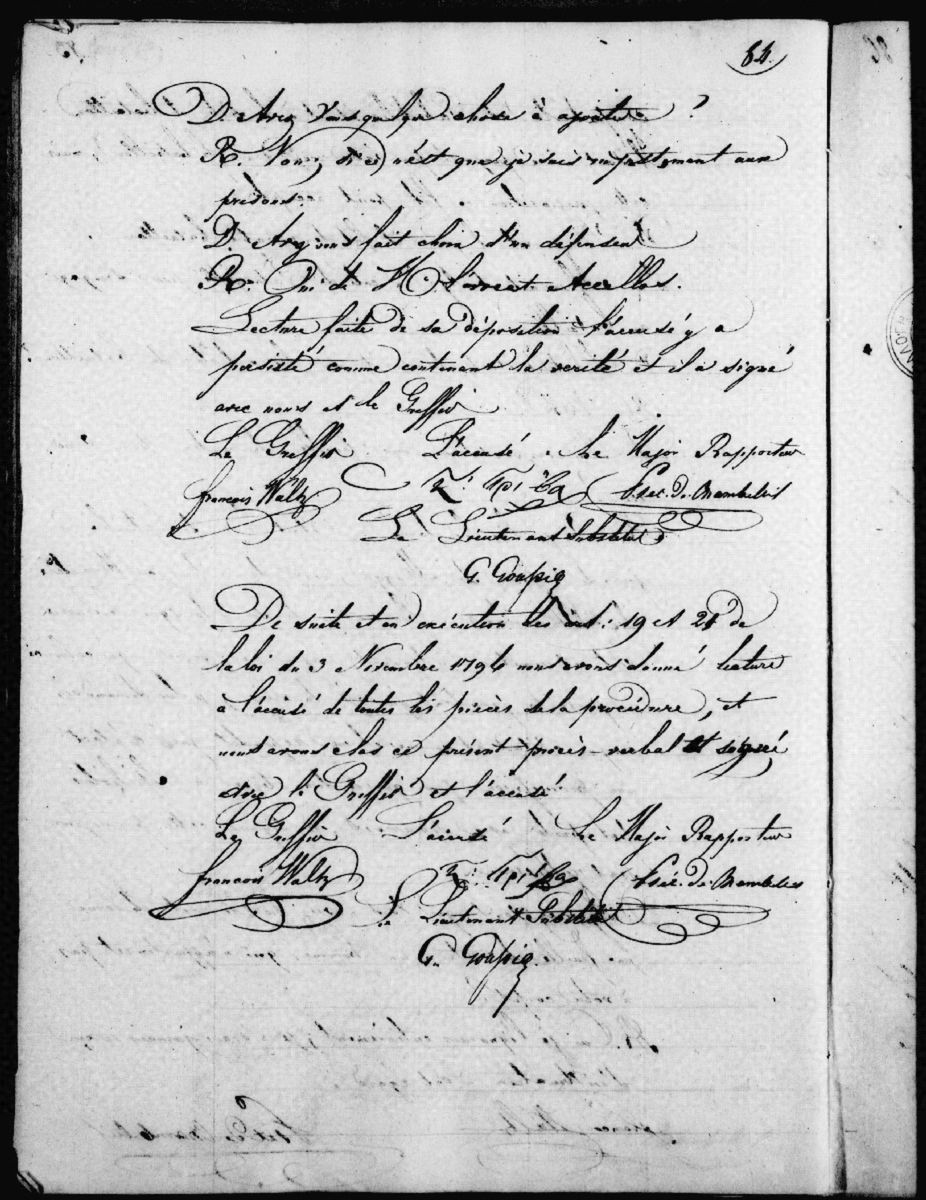 84.
D. Avez vous quelque chose à ajouter ?
R. Non, si ce n'est que je suis injustement aux
prisons.
D. Avez vous fait choix d'un défenseur
R. Oui de M.
Lecture faite de sa déposition l'accusé y a
persisté comme contenant la verité et il a signé
avec nous et le Greffier
Le Greffier L'accusé. Le Major Rapporteur
françois Waltz
Le Lieutenant Substitut
De suite et en exécution des art: 19 et 21 de
la loi du 3 Novembre 1796 nous avons donné lecture
à l'accusé de toutes les pièces de la procédure, et
nous avons clos ce présent procès-verbal et signé,
avec le Greffier et l'accusé
Le Greffier L'accusé Le Major Rapporteur
françois Waltz
Le Lieutenant Substitut